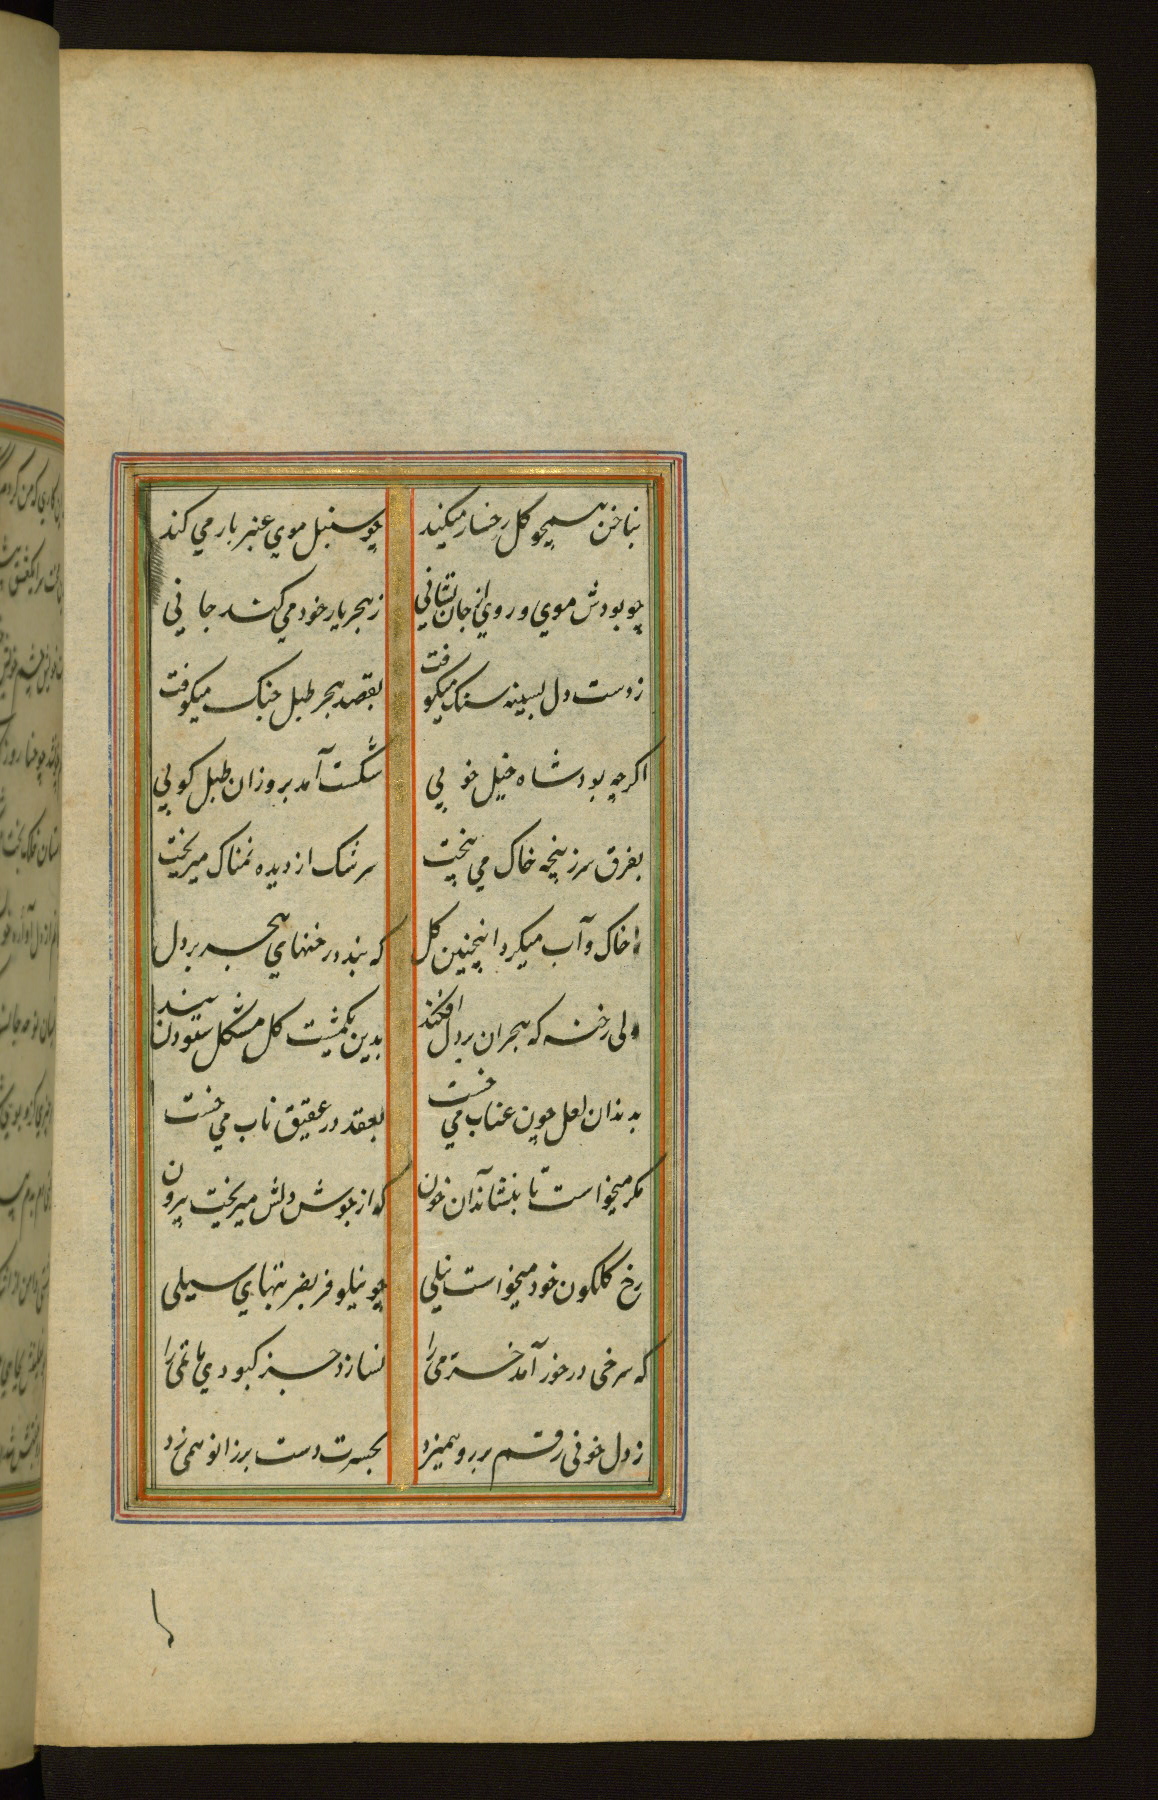 بناخن همچو کل رخسار میکند چو سنبل موی عنبر بار می کند
چو بودش موی و روی از جان نشانی ز هجر یار خود می کند جانی
ز دست دل بسینه سنک میکوفت بقصد هجر طبل جنک میکوفت
اکرچه بود شاه خیل خوبی شکست آمد بروزان طبل کوبی
بفرق سر ز پنجه خاک می بیخت سرشک از دیده نمناک میریخت
ز خاک و آب میکرد اینچنین کل که بندد رخنهای هجر بر دل
ولی رخنه که هجران بر دل افکند بدین یکمشت کل مشکل شود بند
بدندان لعل چون عناب می خست بعقد در عقیق ناب می خست
مکر میخواست تا بنشاند آن خون که از جوش دلش میریخت بیرون
رخ کلکون خود میخواست نیلی چو نیلوفر بضربتهای سیلی
که سرخی درخور آمد خرمی را نسازد جز کبودی ماتمی را
ز دل خونی رقم بر رو همیزد بحسرت دست بر زانو همی زد